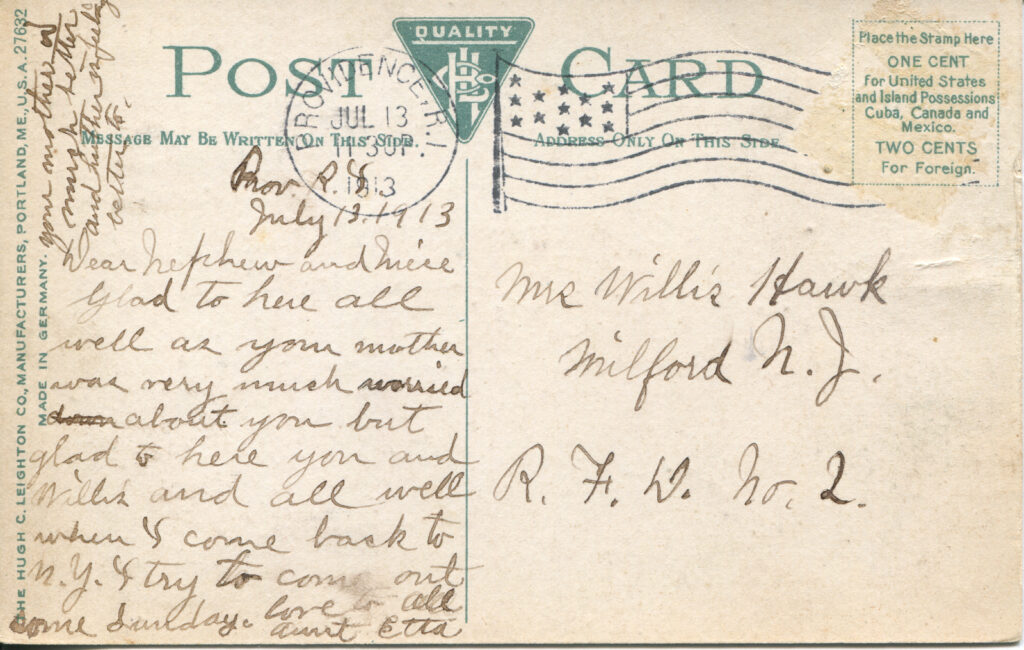 POST CARD
QUALITY
HL Co
MESSAGE MAY BE WRITTEN ON THIS SIDE.
ADDRESS ONLY ON THIS SIDE
Place the Stamp Here
ONE CENT
for United States
and Island Possessions
Cuba, Canada and
Mexico.
TWO CENTS
For Foreign.
PROVIDENCE, R.I.
JUL 13
11 30 P.
1913
THE HUGH C. LEIGHTON CO., MANUFACTURERS, PORTLAND, ME., U.S.A. 27632
MADE IN GERMANY.
Prov R.I.
July 13. 1913
Dear Nephew and Niece
Glad to here all
well as your mother
was very much worried
about you but
glad to here you and
Willis and all well
when I come back to
N.Y. I try to come out
some Sunday. love to all
aunt Etta
your mother is
much better
and father is feeling
better to.
Mrs Willis Hawk
Milford N.J.
R. F. D. No. 2.